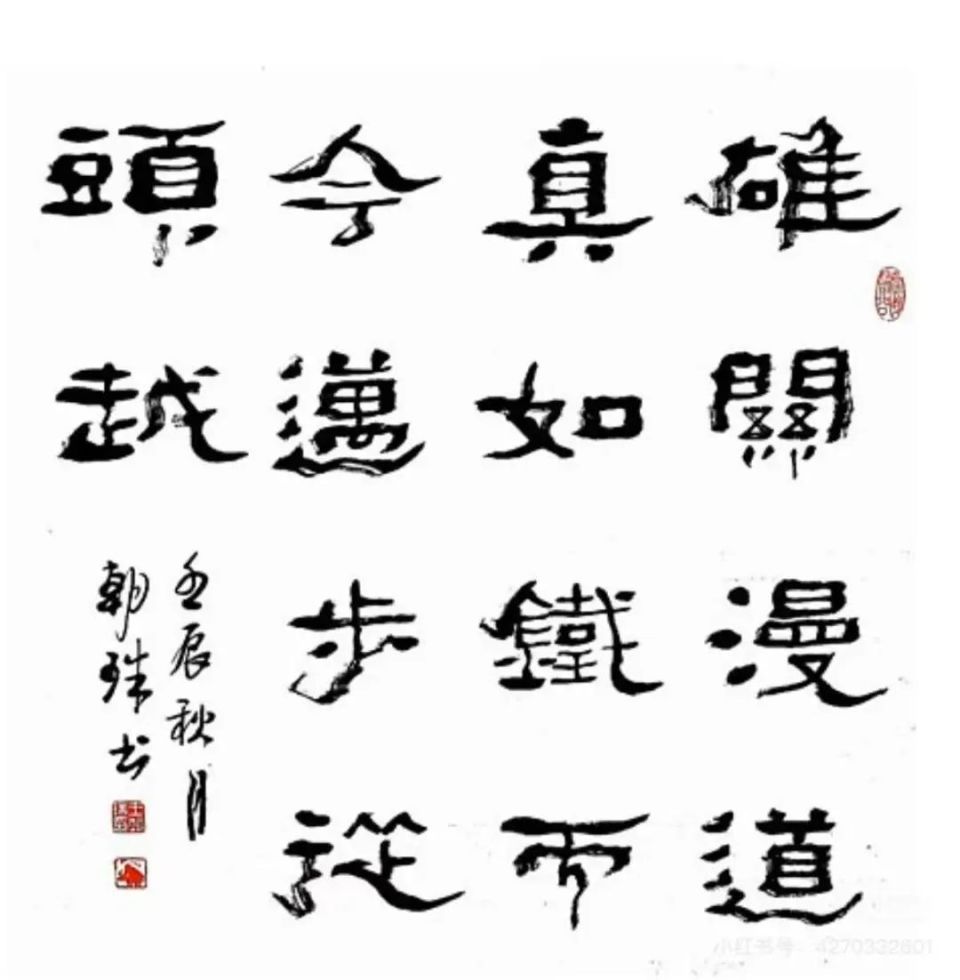 雄關漫道
真如鐵而
今邁步從
頭越
壬辰秋月
朝珠书
小红书号：4270332601